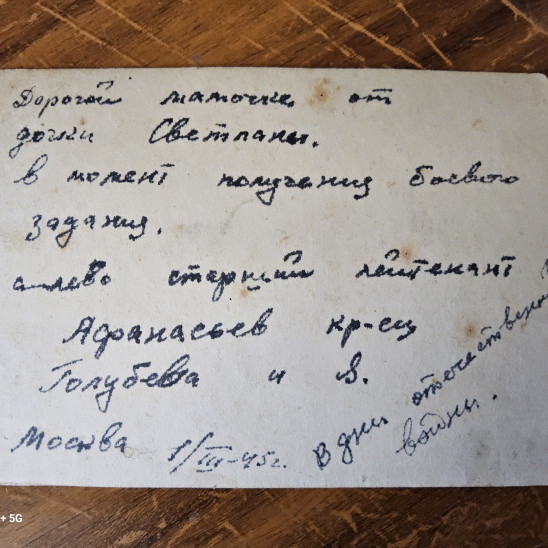 Дорогой мамочке от
дочки Светланы.
в момент получения боевого
задания.
слево старший лейтенант
Афранасьев кр-ец
Голубева и я.
Москва 1/III-45г.
в дни отечественной
войны.
+ 5G